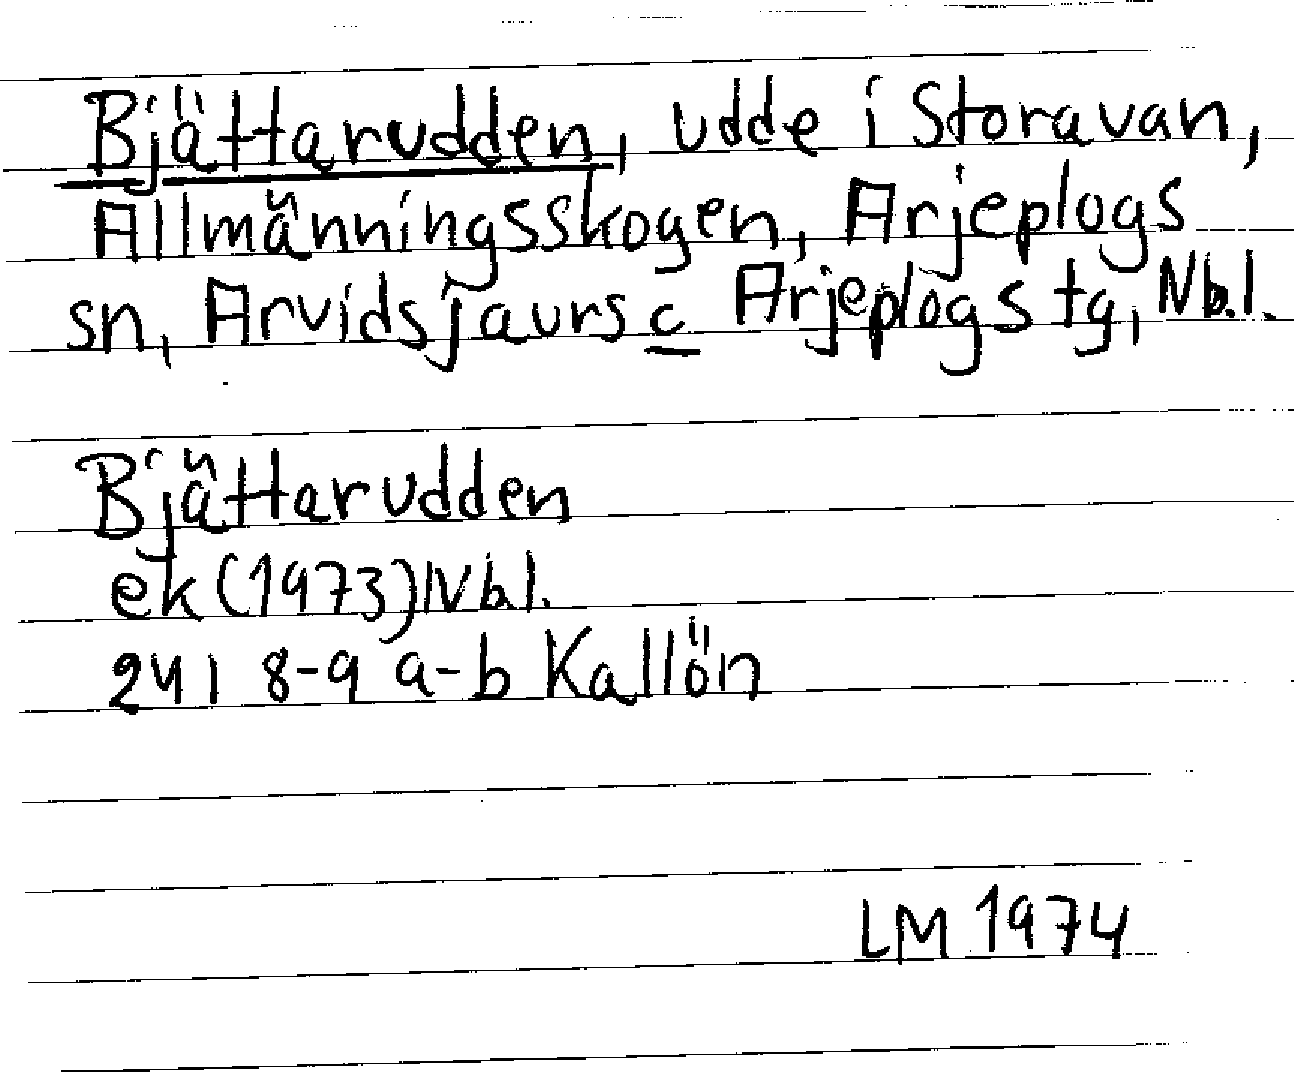 Bjättarudden, udde i Storavan,
Allmänningsskogen, Arjeplogs
sn, Arvidsjaurs c Arjeplogs tg, Nb.l.
Bjättarudden
ek (1973) Nb.l.
24 I 8-9 a-b Kallön
LM 1974